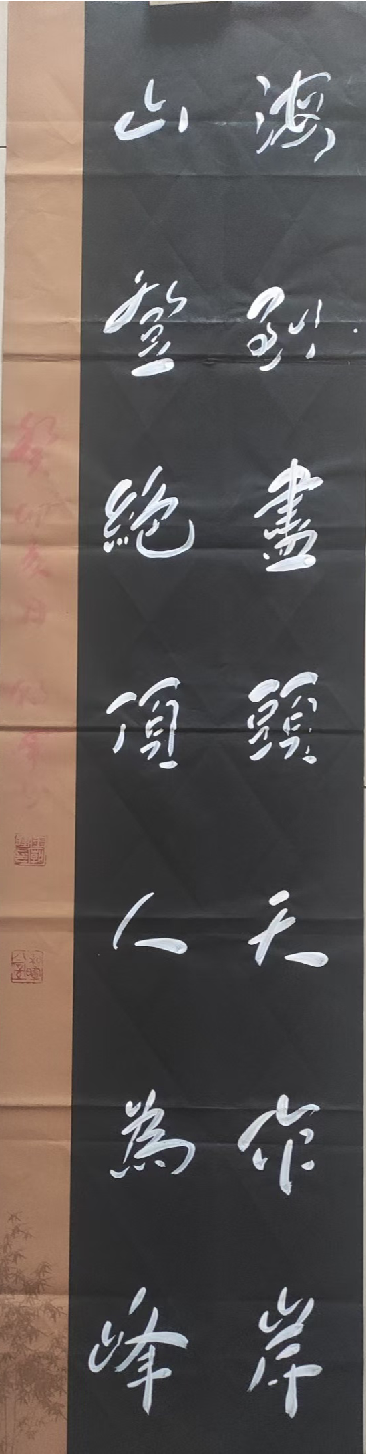 海到盡頭天作岸
山登絕頂人為峰